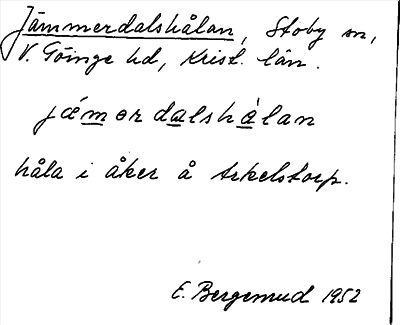 Jämmerdalshålan, Stoby sn,
V. Göinge hd, Krist. län.
jǽmərdɑlshålan
håla i åker å Arkelstorp.
E. Bergemud 1952